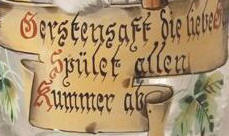 Gerstensaft die liebe
Spület allen
Kummer ab